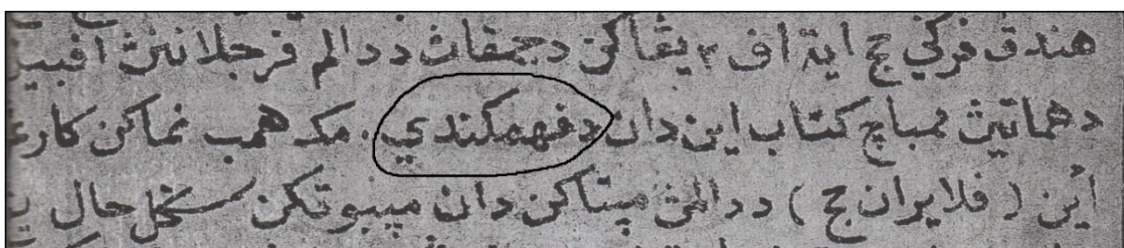 هندق ڤرڬي حج ايت اڤ٢ يڠ اکن دجمڤاڽ ددالم ڤرجلاننڽ
دهماتيڽ ممباچ کتاب اين دان دفهمکندي. مک همب نماکن
اين (ڤلايران حج) ددالمڽ مپتاکن دان مپبوتکن سڬل حال